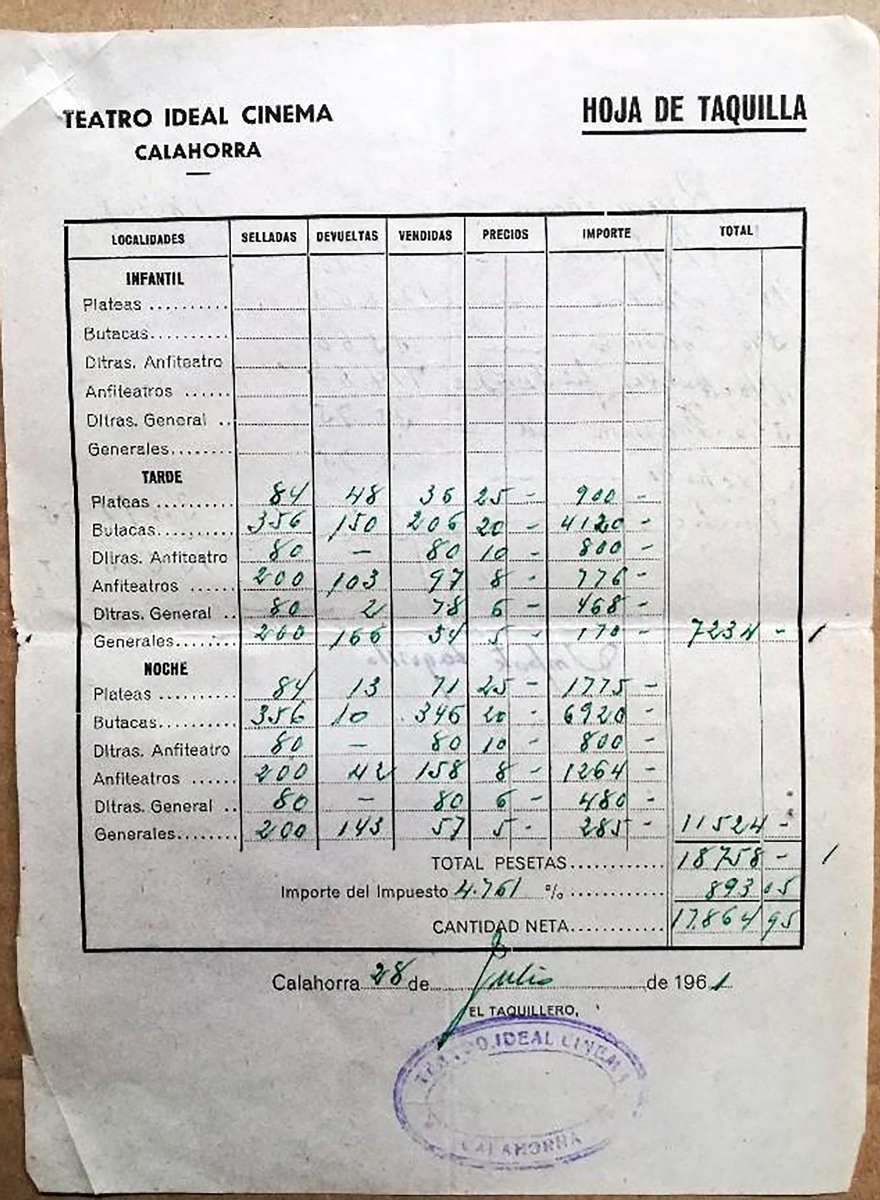 TEATRO IDEAL CINEMA
CALAHORRA
HOJA DE TAQUILLA
LOCALIDADES SELLADAS DEVUELTAS VENDIDAS PRECIOS IMPORTE TOTAL
INFANTIL
Plateas ..........
Butacas..........
Dltras. Anfiteatro
Anfiteatros ......
Dltras. General ..
Generales.......
TARDE
Plateas .......... 84 48 36 25 - 900 -
Butacas.......... 356 150 206 20 - 4120 -
Dltras. Anfiteatro 80 — 80 10 - 800 -
Anfiteatros ...... 200 103 97 8 - 776 -
Dltras. General .. 80 2 78 6 - 468 -
Generales....... 200 166 34 5 - 170 - 7234 -
NOCHE
Plateas .......... 84 13 71 25 - 1775 -
Butacas.......... 356 10 346 20 - 6920 -
Dltras. Anfiteatro 80 — 80 10 - 800 -
Anfiteatros ...... 200 42 158 8 - 1264 -
Dltras. General .. 80 — 80 6 - 480 -
Generales........ 200 143 57 5 - 285 - 11524 -
TOTAL PESETAS............ 18758 -
Importe del Impuesto 4.761 % ............ 893 05
CANTIDAD NETA............ 17.864 95
Calahorra 28 de Julio de 1961
EL TAQUILLERO,
TEATRO IDEAL CINEMA
CALAHORRA